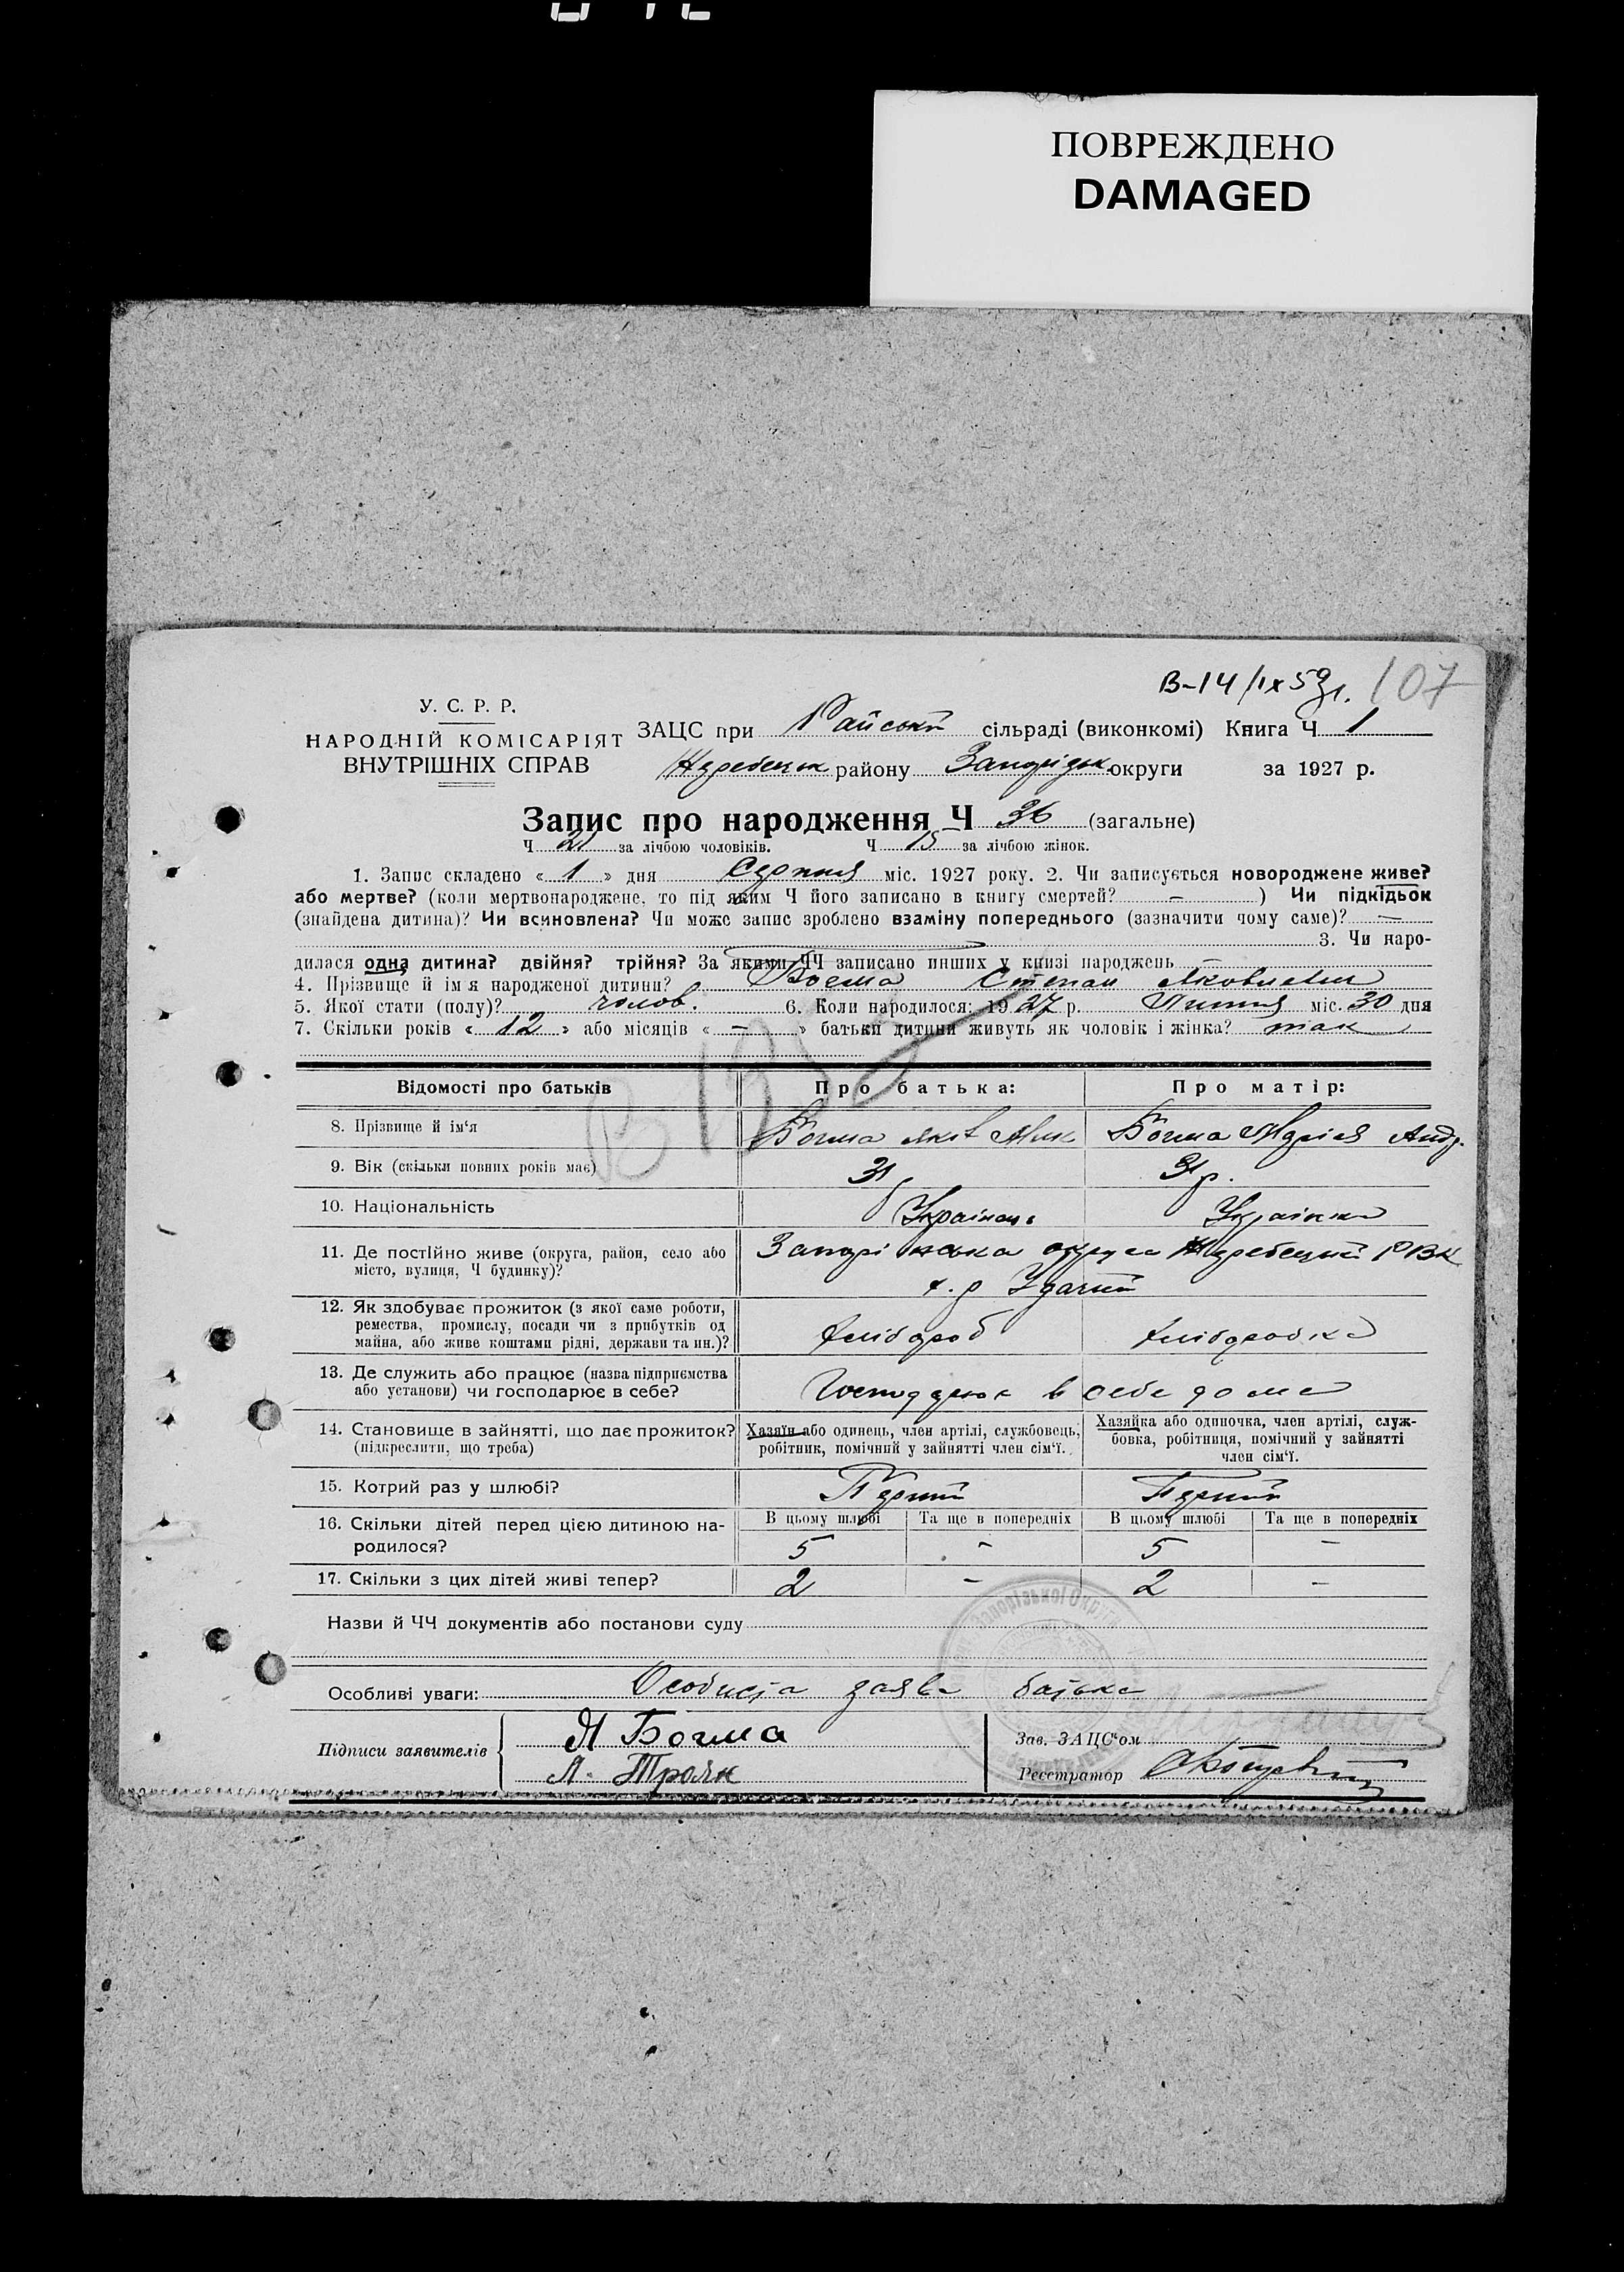 ПОВРЕЖДЕНО
DAMAGED
В-14/IX 59г. 107
У. С. Р. Р.
НАРОДНІЙ КОМІСАРІЯТ
ВНУТРІШНІХ СПРАВ
ЗАЦС при Райській сільраді (виконкомі) Книга Ч 1
Жеребецьк району Запорізьк округи за 1927 р.
Запис про народження Ч 36 (загальне)
Ч 21 за лічбою чоловіків. Ч 15 за лічбою жінок.
1. Запис складено « 1 » дня Серпня міс. 1927 року. 2. Чи записується новороджене живе?
або мертве? (коли мертвонароджене, то під яким Ч його записано в книгу смертей? – ) Чи підкідьок
(знайдена дитина)? Чи всиновлена? Чи може запис зроблено взаміну попереднього (зазначити чому саме)? —
3. Чи наро-
дилася одна дитина? двійня? трійня? За якими ЧЧ записано инших у книзі народжень —
4. Прізвище й імя народженої дитини? Богма Степан Яковлевич
5. Якої стати (полу)? чолов. 6. Коли народилося: 1927 р. Липня міс. 30 дня
7. Скільки років « 12 » або місяців « – » батьки дитини живуть як чоловік і жінка? так
Відомості про батьків Про батька: Про матір:
8. Прізвище й ім‘я Богма Яків Мик Богма Марія Андр.
9. Вік (скільки повних років має) 31 31 р.
10. Національність Українець Українка
11. Де постійно живе (округа, район, село або
місто, вулиця, Ч будинку)?
Запорізька округа Жеребецький РВК
х. Удачний
12. Як здобуває прожиток (з якої саме роботи,
ремества, промислу, посади чи з прибутків од
майна, або живе коштами рідні, держави та ин.)?
хлібороб хліборобка
13. Де служить або працює (назва підприємства
або установи) чи господарює в себе?
Господарює в себе дома
14. Становище в зайнятті, що дає прожиток?
(підкреслити, що треба)
Хазяїн або одинець, член артілі, службовець,
робітник, помічний у зайнятті член сім‘ї.
Хазяйка або одиночка, член артілі, служ-
бовка, робітниця, помічний у зайнятті
член сім‘ї.
15. Котрий раз у шлюбі? Перший Перший
16. Скільки дітей перед цією дитиною на-
родилося?
В цьому шлюбі Та ще в попередніх В цьому шлюбі Та ще в попередніх
5 – 5 –
17. Скільки з цих дітей живі тепер? 2 – 2 –
Назви й ЧЧ документів або постанови суду
Запорізької Округи
Особливі уваги: Особиста заява батька
Підписи заявителів
Я Богма
Л. Троян
Зав. ЗАЦС‘ом
Реєстратор